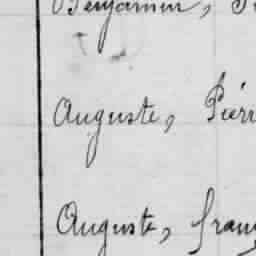 Benjamin,
Auguste, Pierr
Auguste, franç